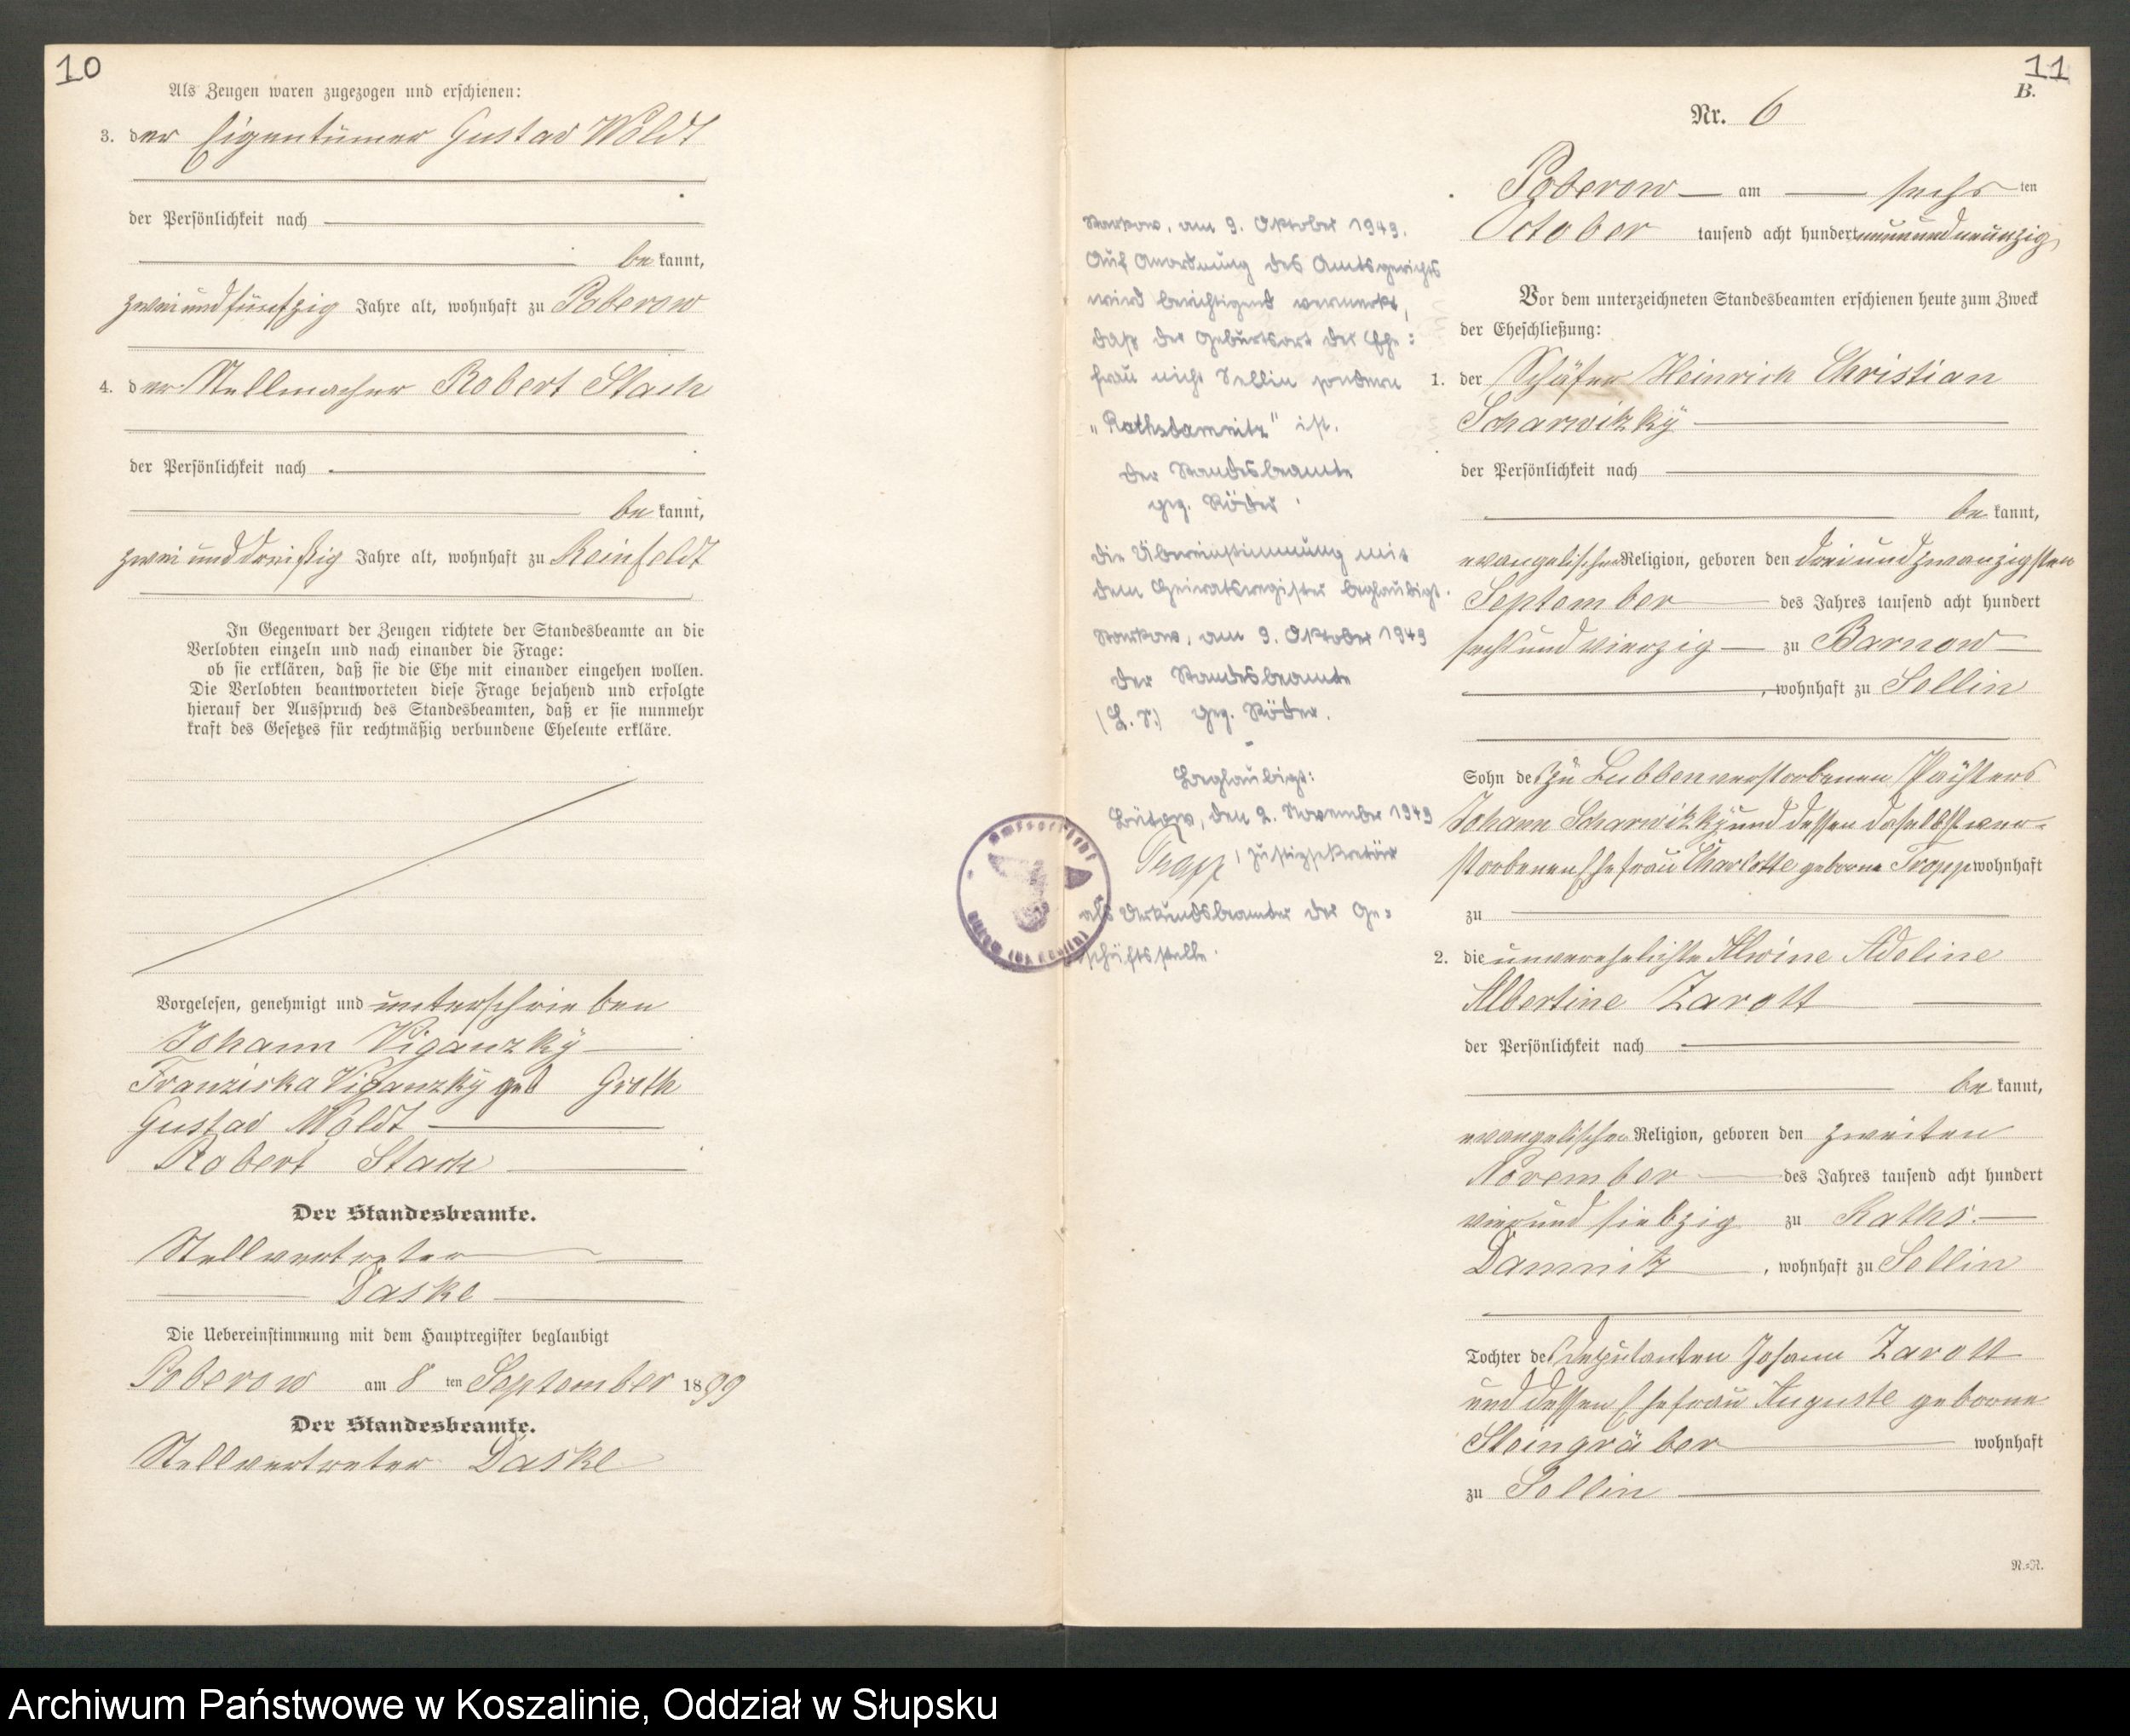 10
Als Zeugen waren zugezogen und erschienen:
3. der Eigentümer Gustav Woldt
der Persönlichkeit nach
bekannt,
zweiundfünfzig Jahre alt, wohnhaft zu Poberow
4. der Stellmacher Robert Stach
der Persönlichkeit nach
bekannt,
zweiunddreißig Jahre alt, wohnhaft zu Reinfeldt
In Gegenwart der Zeugen richtete der Standesbeamte an die
Verlobten einzeln und nach einander die Frage:
ob sie erklären, daß sie die Ehe mit einander eingehen wollen.
Die Verlobten beantworteten diese Frage bejahend und erfolgte
hierauf der Ausspruch des Standesbeamten, daß er sie nunmehr
kraft des Gesetzes für rechtmäßig verbundene Eheleute erkläre.
Vorgelesen, genehmigt und unterschrieben
Johann Viganzky
Franziska Viganzky geb Groth
Gustav Woldt
Robert Stach
Der Standesbeamte.
Stellvertreter
Daske
Die Uebereinstimmung mit dem Hauptregister beglaubigt
Poberow am 8 ten September 1899
Der Standesbeamte.
Stellvertreter Daske
11
B.
Nr. 6
Poberow am sechsten
October tausend acht hundert neunundneunzig
Vor dem unterzeichneten Standesbeamten erschienen heute zum Zweck
der Eheschließung:
1. der Schäfer Heinrich Christian
Scharwitzky
der Persönlichkeit nach
bekannt,
evangelischer Religion, geboren den dreiundzwanzigsten
September des Jahres tausend acht hundert
sechsundvierzig zu Barnow
, wohnhaft zu Sellin
Sohn des zu Lubben verstorbenen Pächters
Johann Scharwitzky und dessen daselbst ver-
storbenen Ehefrau Charlotte geborne Tropp wohnhaft
zu
2. die unverehelichte Alwine Adeline
Albertine Zarott
der Persönlichkeit nach
bekannt,
evangelischer Religion, geboren den zweiten
November des Jahres tausend acht hundert
vierundsiebzig zu Raths-
Damnitz, wohnhaft zu Sellin
Tochter des Deputanten Johann Zarott
und dessen Ehefrau Auguste geborne
Steingräber wohnhaft
zu Sellin
N.=N.
Starkow, am 9. Oktober 1943.
Auf Anordnung des Amtsgerichts
wird berichtigend vermerkt,
daß der Geburtsort der Ehe:
frau nicht Sellin sondern
"Rathsdamnitz" ist.
Der Standesbeamte
gez. Röder
Die Übereinstimmung mit
dem Heiratsregister beglaubigt.
Starkow, am 9. Oktober 1943
Der Standesbeamte
(L. S.) gez. Röder.
Beglaubigt:
Bütow, den 2. November 1943
Trapp, Justizsekretär
als Urkundsbeamter der Ge=
schäftsstelle.
Amtsgericht
Archiwum Państwowe w Koszalinie, Oddział w Słupsku